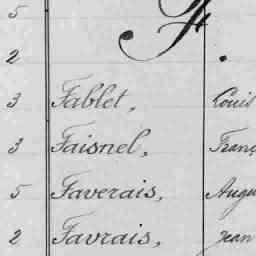 5
F.
2
3 Fablet, Louis
3 Faisnel, Franç
5 Faverais, Augu
2 Favrais, Jean